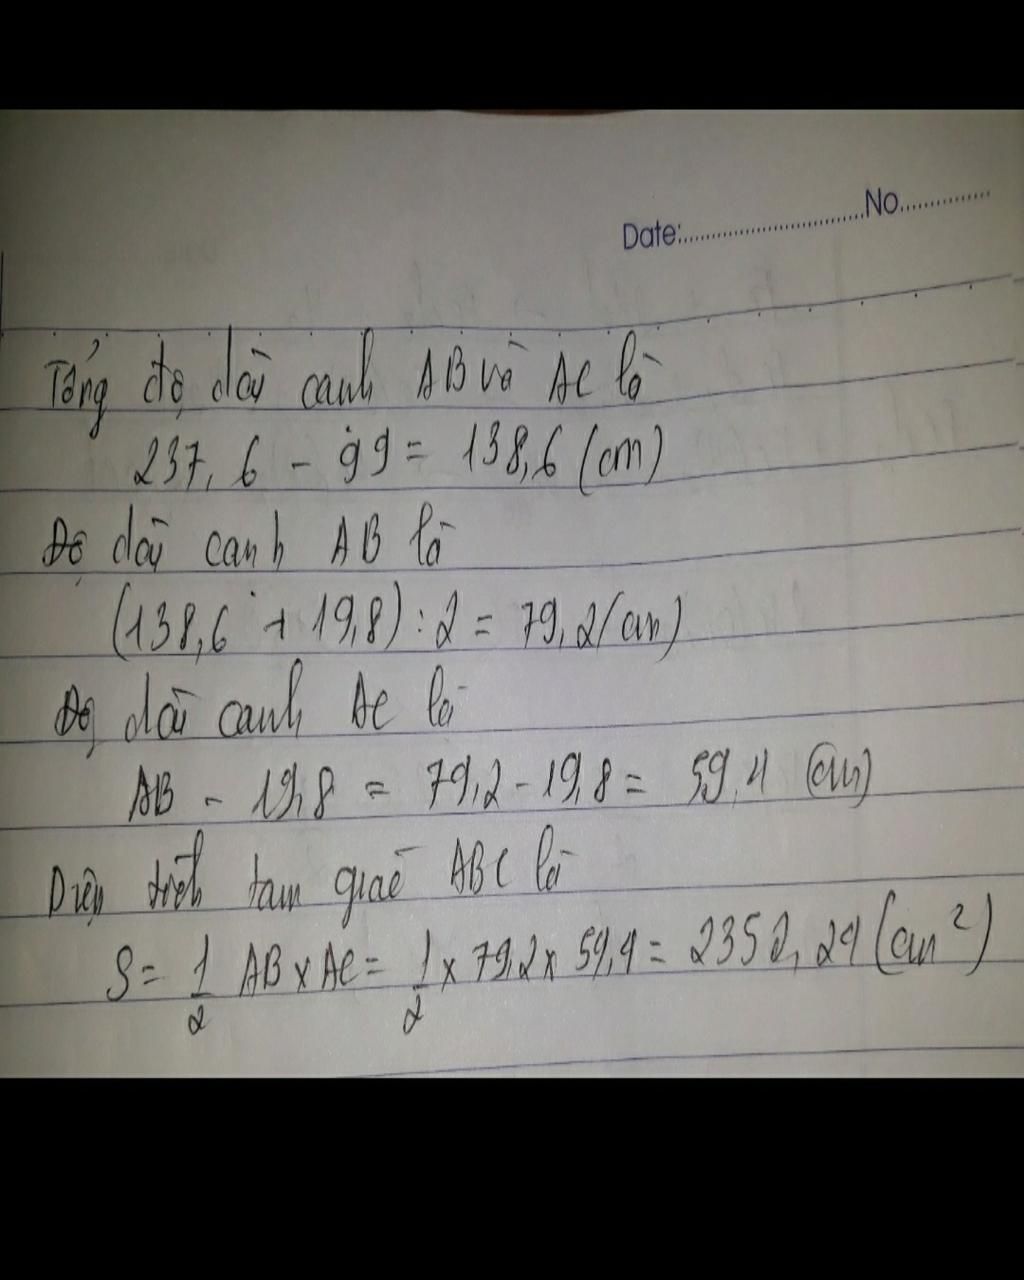 Date:............................No..............
Tổng độ dài canh AB và AC là
237,6 - 99 = 138,6 (cm)
Độ dài canh AB là
(138,6 + 19,8) : 2 = 79,2 (cm)
Độ dài canh AC là
AB - 19,8 = 79,2 - 19,8 = 59,4 (cm)
Diện tích tam giác ABC là
S = 1/2 AB x AC = 1/2 x 79,2 x 59,4 = 2352,24 (cm²)